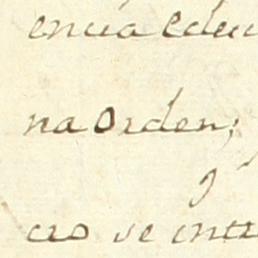 encia edu
na orden;
y
cio se entr